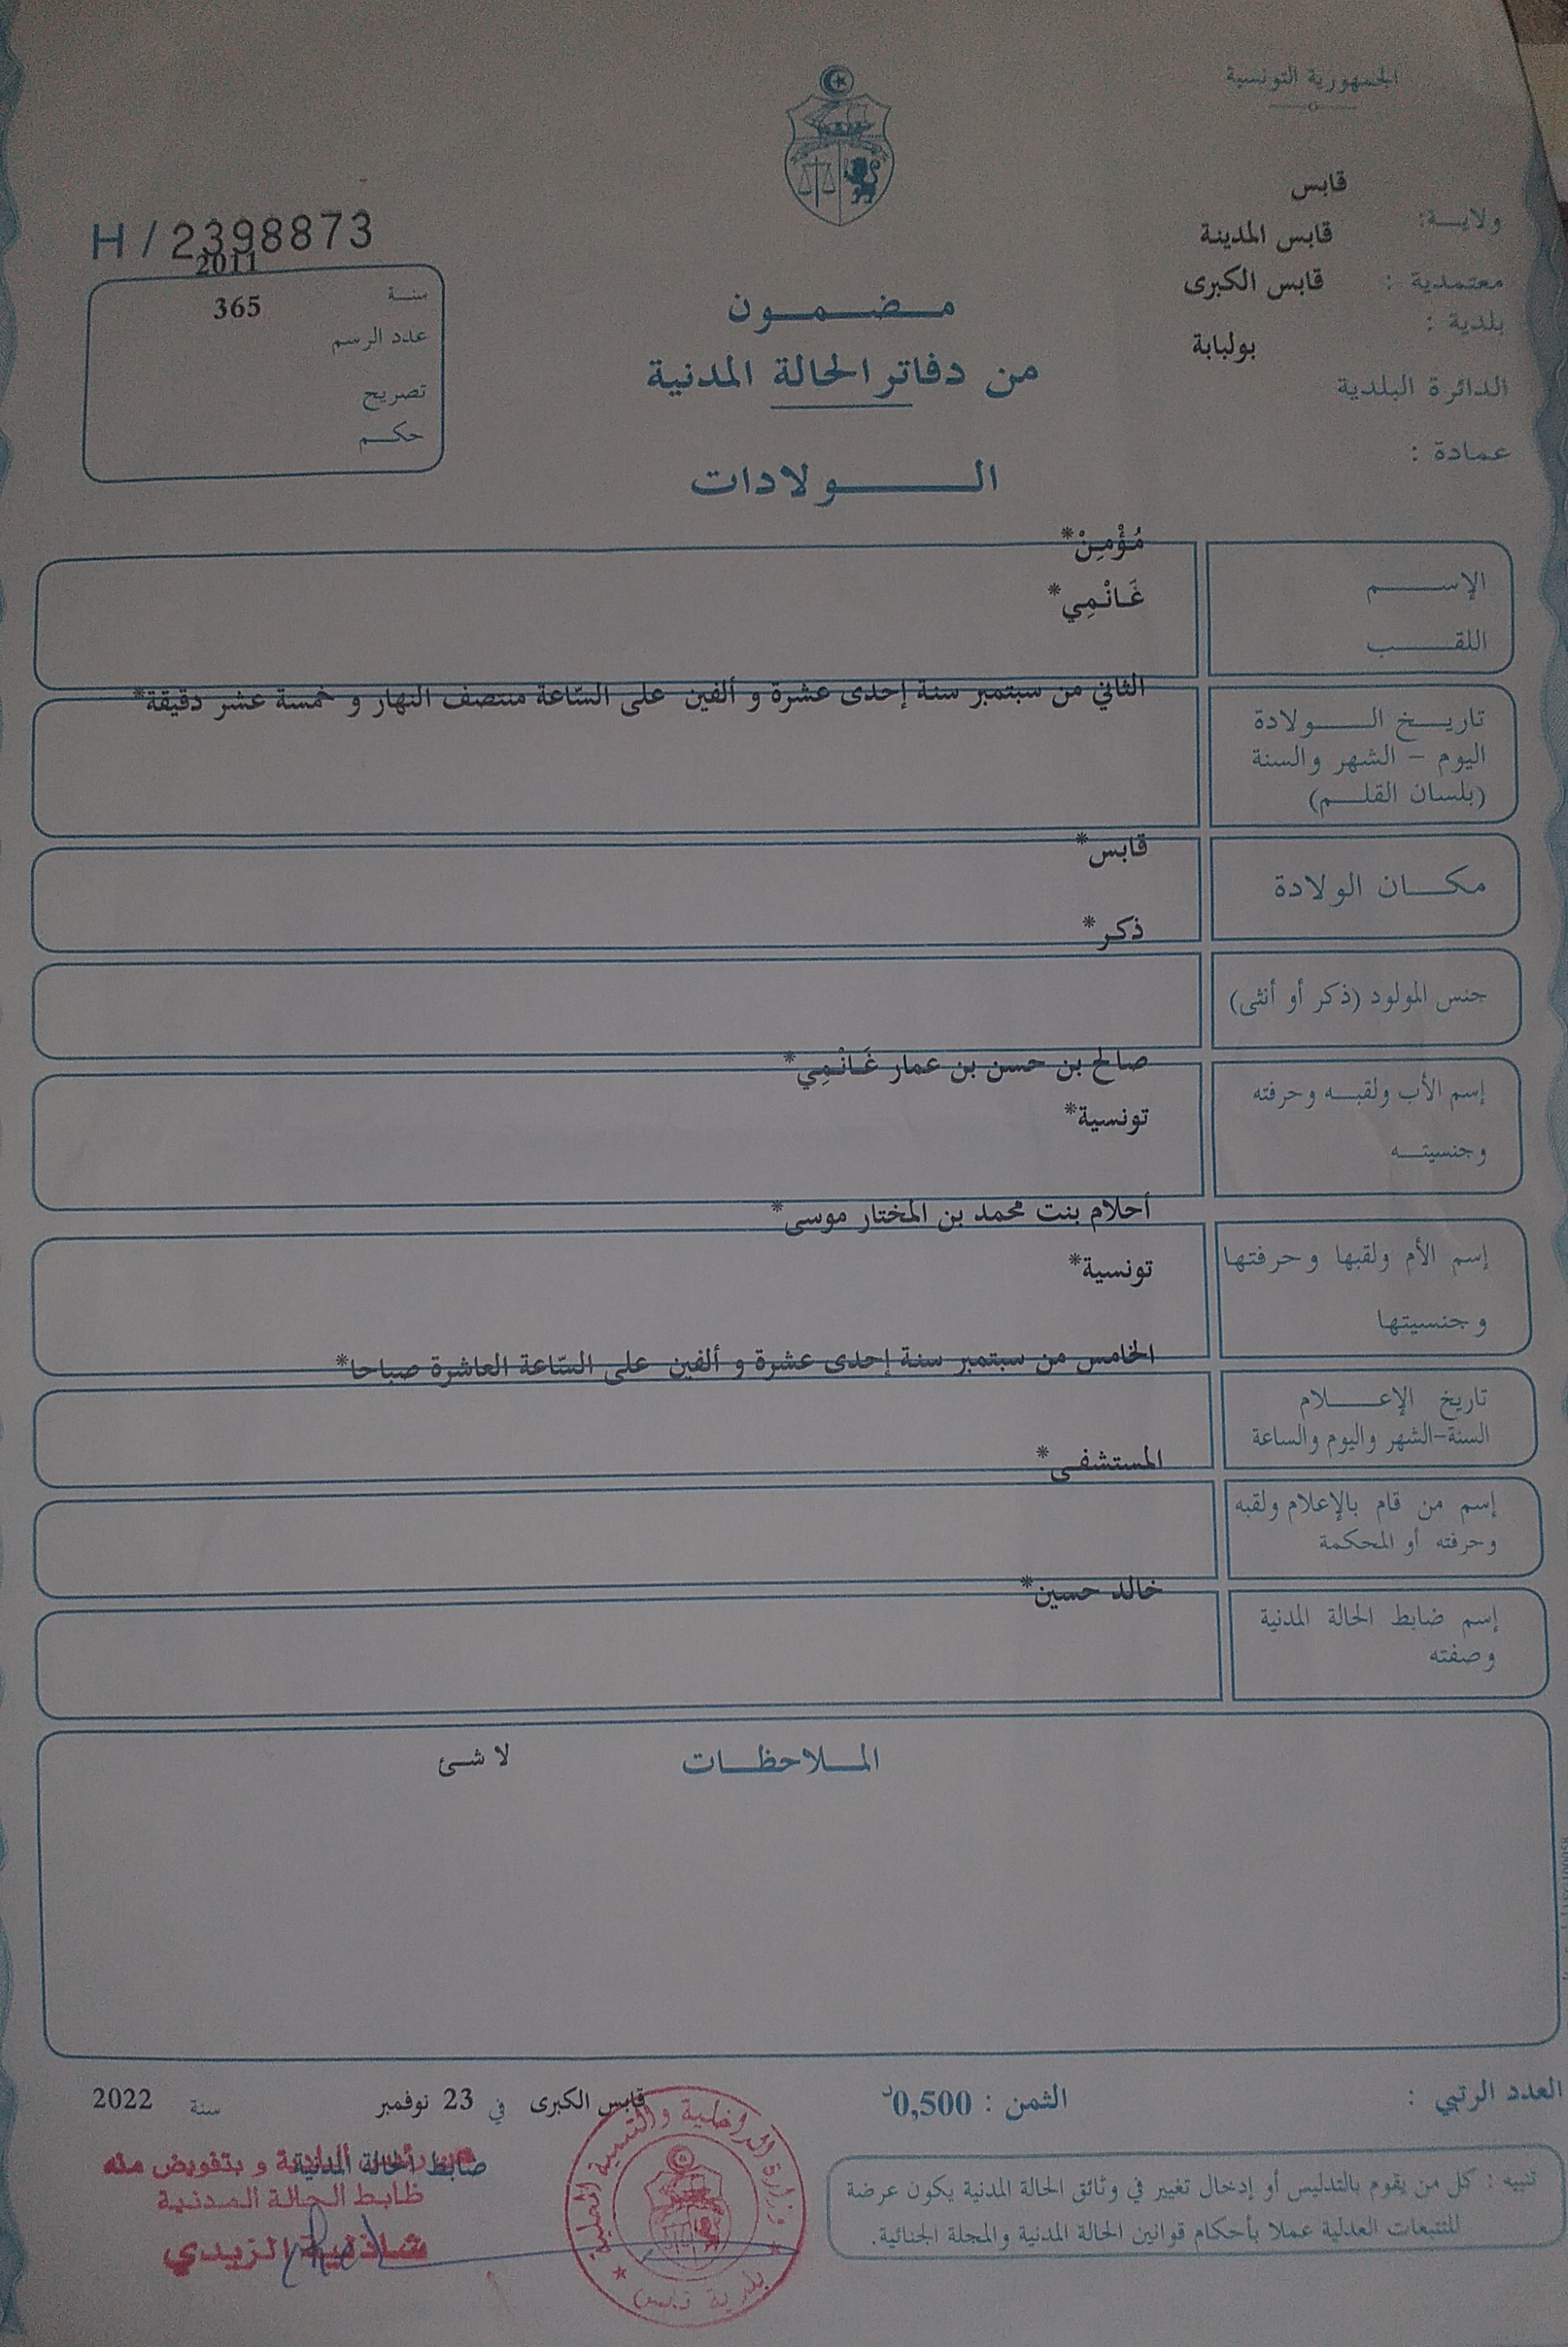 الجمهورية التونسية
قابس
ولايـــة:
قابس المدينة
معتمدية :
قابس الكبرى
بلدية :
بولبابة
الدائرة البلدية
عمادة :
H / 2398873
2011
سنـــة
365
عدد الرسم
تصريح
حكـــم
مـــضـــمـــون
من دفاتر الحالة المدنية
الـــــولادات
مُؤْمِنْ*
الإســـــم
غَـانْـمِي*
اللقـــــب
الثاني من سبتمبر سنة إحدى عشرة و ألفين على السّاعة منتصف النهار و خمسة عشر دقيقة*
تاريـــخ الـــــولادة
اليوم – الشهر والسنة
(بلسان القلـــم)
قابس*
مكـــان الولادة
ذكر*
جنس المولود (ذكر أو أنثى)
صالح بن حسن بن عمار غَـانْـمِي*
إسم الأب ولقبـــه وحرفته
تونسية*
وجنسيتـــه
أحلام بنت محمد بن المختار موسى*
إسم الأم ولقبها وحرفتها
تونسية*
وجنسيتها
الخامس من سبتمبر سنة إحدى عشرة و ألفين على السّاعة العاشرة صباحا*
تاريخ الإعـــــلام
السنة-الشهر واليوم والساعة
المستشفى*
إسم من قام بالإعلام ولقبه
وحرفته أو المحكمة
خالد حسين*
إسم ضابط الحالة المدنية
وصفته
المـــلاحظـــات
لا شئ
العدد الرتبي :
الثمن : 0,500د
قابس الكبرى في 23 نوفمبر سنة 2022
ضابط الحالة المدنية
عن رئيس البلدية و بتفويض منه
ظابط الحالة المدنية
شاذلية الزيدي
وزارة الداخلية والتنمية المحلية
بلدية قابس
تنبيه : كل من يقوم بالتدليس أو إدخال تغيير في وثائق الحالة المدنية يكون عرضة
للتتبعات العدلية عملا بأحكام قوانين الحالة المدنية والمجلة الجنائية.